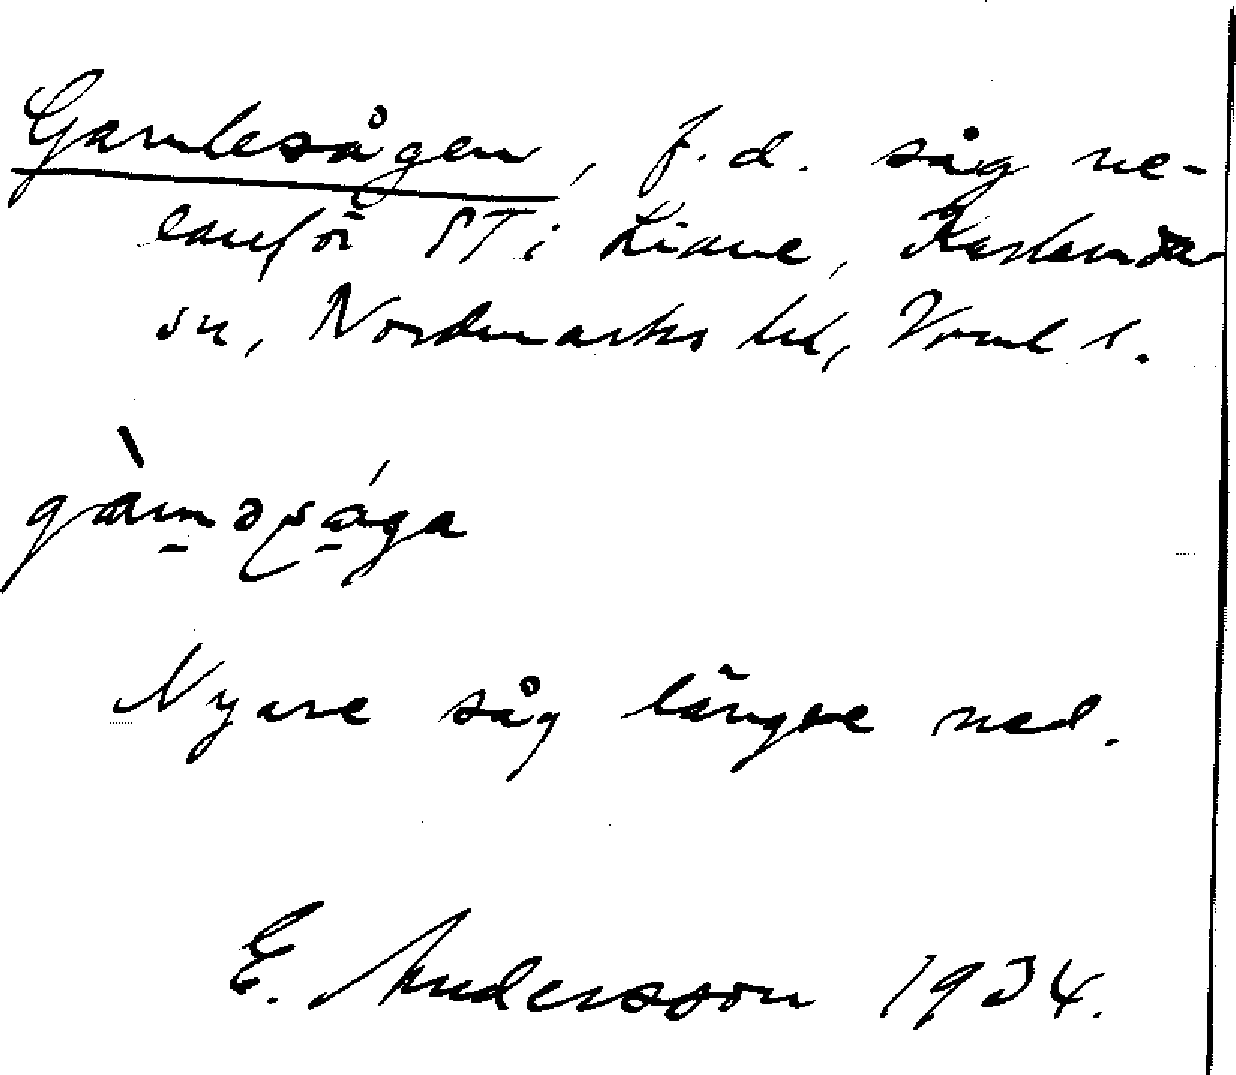 Gamlesågen, f.d. såg ne-
lanför PT i Liane, Karlanda
sn, Nordmarks hd, Vrml l.
Nyare såg längre ned.
E. Andersson 1934.